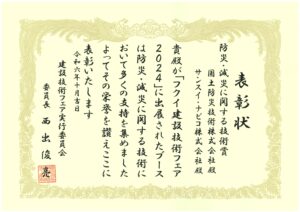 表彰状
防災・減災に関する技術賞
国土防災技術株式会社 殿
サンスイ・ナビコ株式会社 殿
貴殿が「フクイ建設技術フェア
2024」に出展されたブース
は防災・減災に関する技術に
おいて多くの支持を集めました
よってその栄誉を讃えここに
表彰いたします
令和六年十月吉日
建設技術フェア実行委員会
委員長 西出俊亮